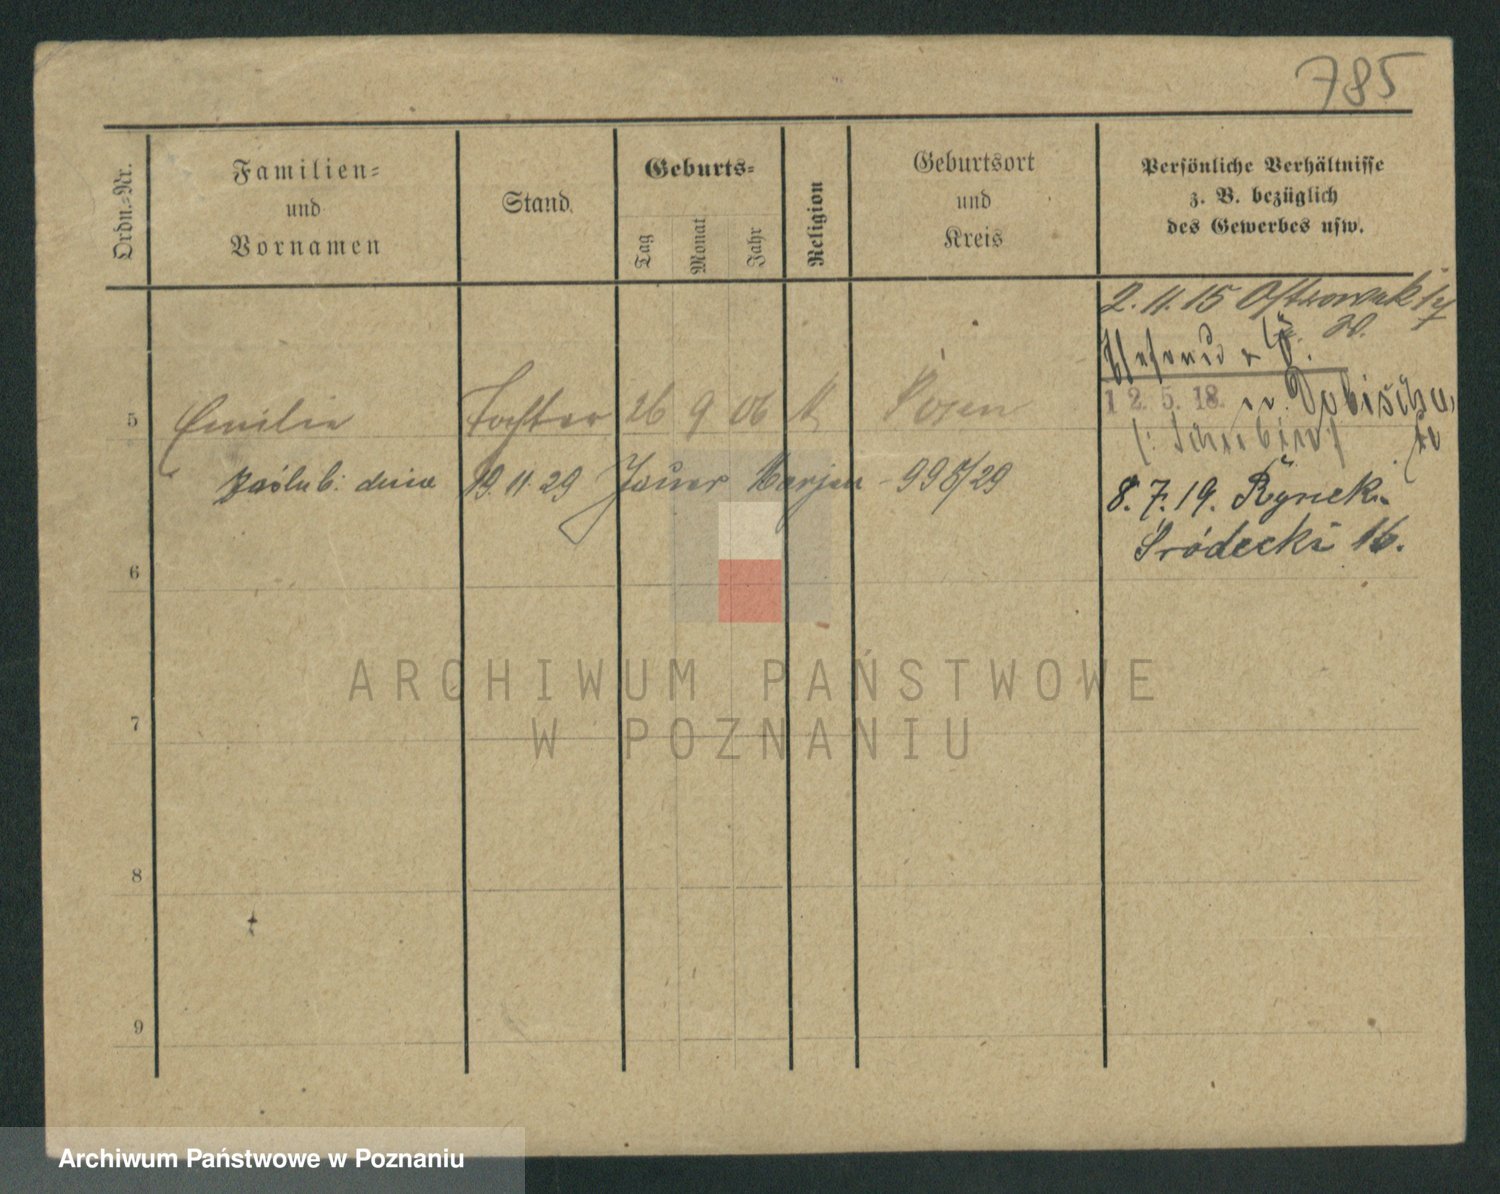 785
Ordn.=Nr.
Familien=
und
Vornamen
Stand.
Geburts=
Tag
Monat
Jahr
Religion
Geburtsort
und
Kreis
Persönliche Verhältnisse
z. B. bezüglich
des Gewerbes usw.
2. 11. 15 Ostrowek 17
20.
5 Emilie Tochter 26 9 06 K Posen
12. 5. 18.
zaślub. dnia 19. 11. 29 Jauer Marjan - 998/29
8. 7. 19. Rynek
Śródecki 16.
6
7
8
9
ARCHIWUM PAŃSTWOWE
W POZNANIU
Archiwum Państwowe w Poznaniu